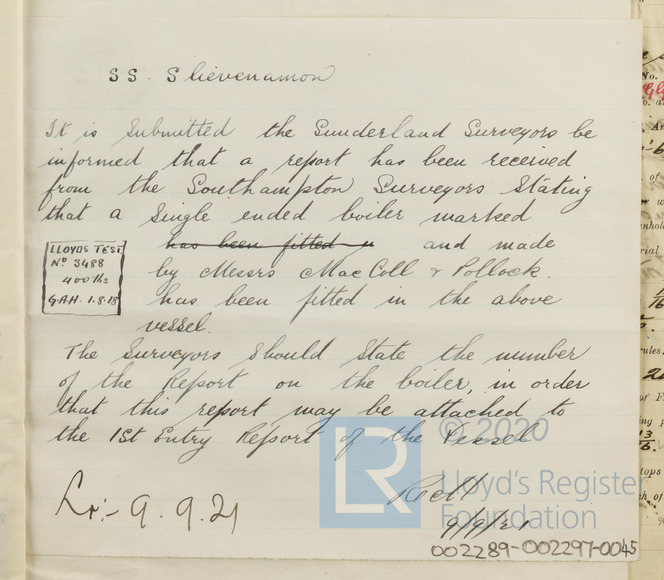 SS. Slievenamon
It is Submitted the Sunderland Surveyors be
informed that a report has been received
from the Southampton Surveyors Stating
that a Single ended boiler marked
LLOYDS TEST
No 3488
400 lbs
G.A.H. 1.8.18
has been fitted
and made
by Messrs MacColl & Pollock.
has been fitted in the above
vessel.
The Surveyors Should State the number
of the Report on the boiler, in order
that this report may be attached to
the 1st Entry Report of the Vessel
9.9.21
9/9/21
© 2020
LR
Lloyd's Register
Foundation
002289-002297-0045